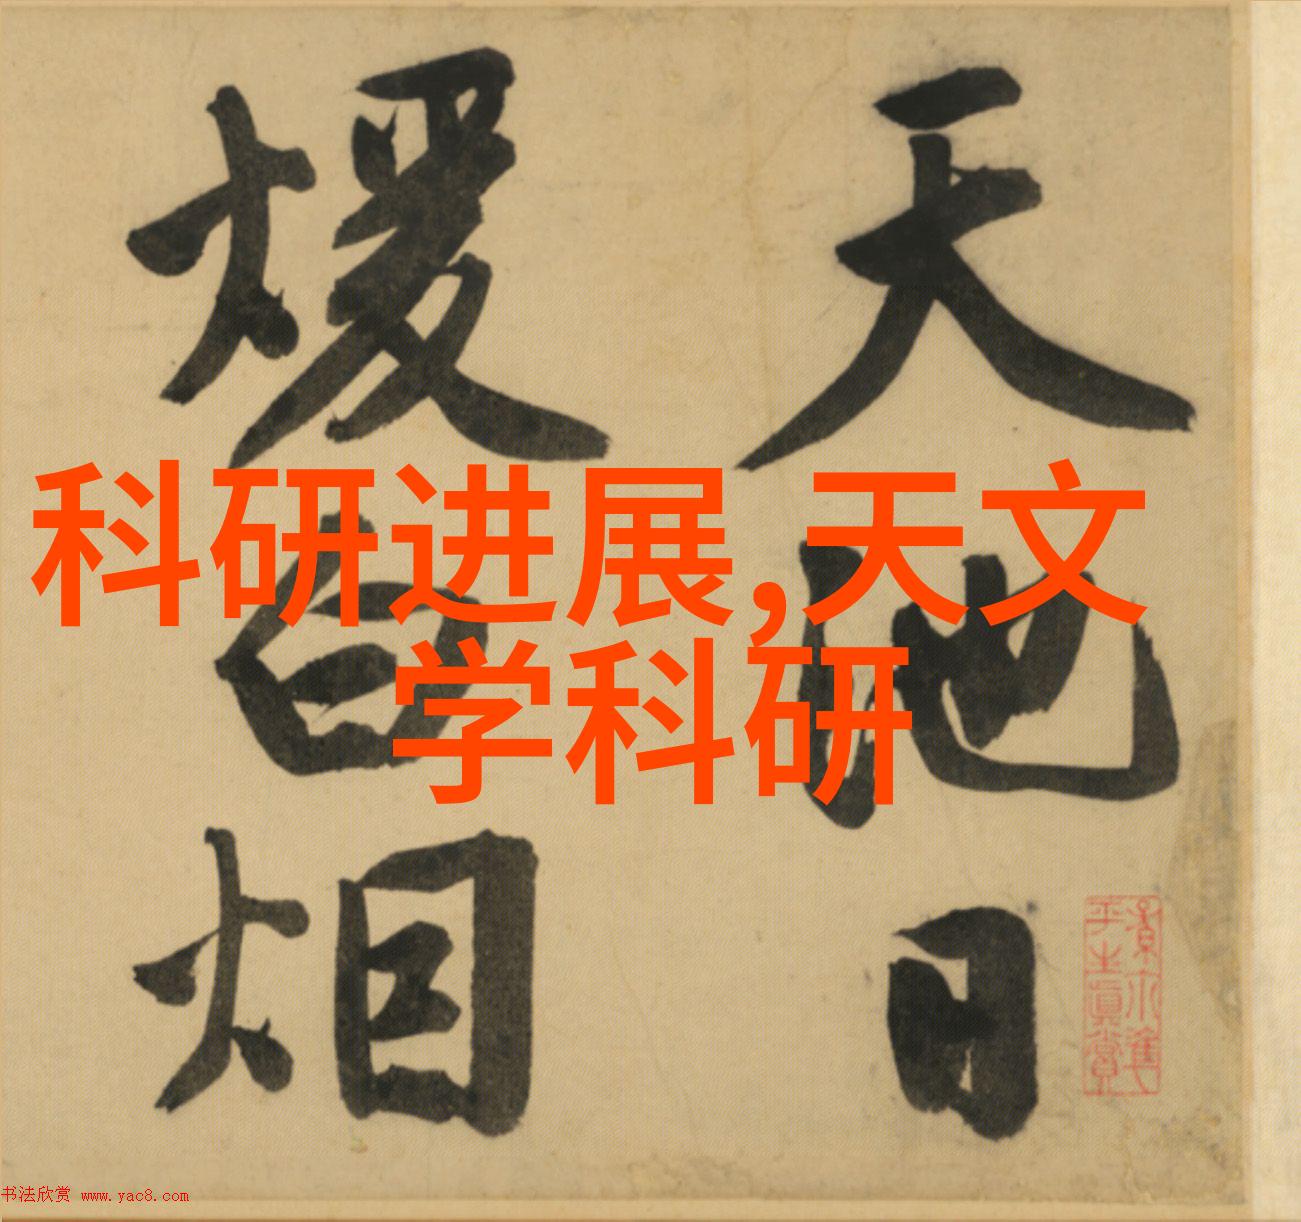 天地日
煖
科研进展,天文
学科研
平生真賞
书法欣赏 www.yac8.com